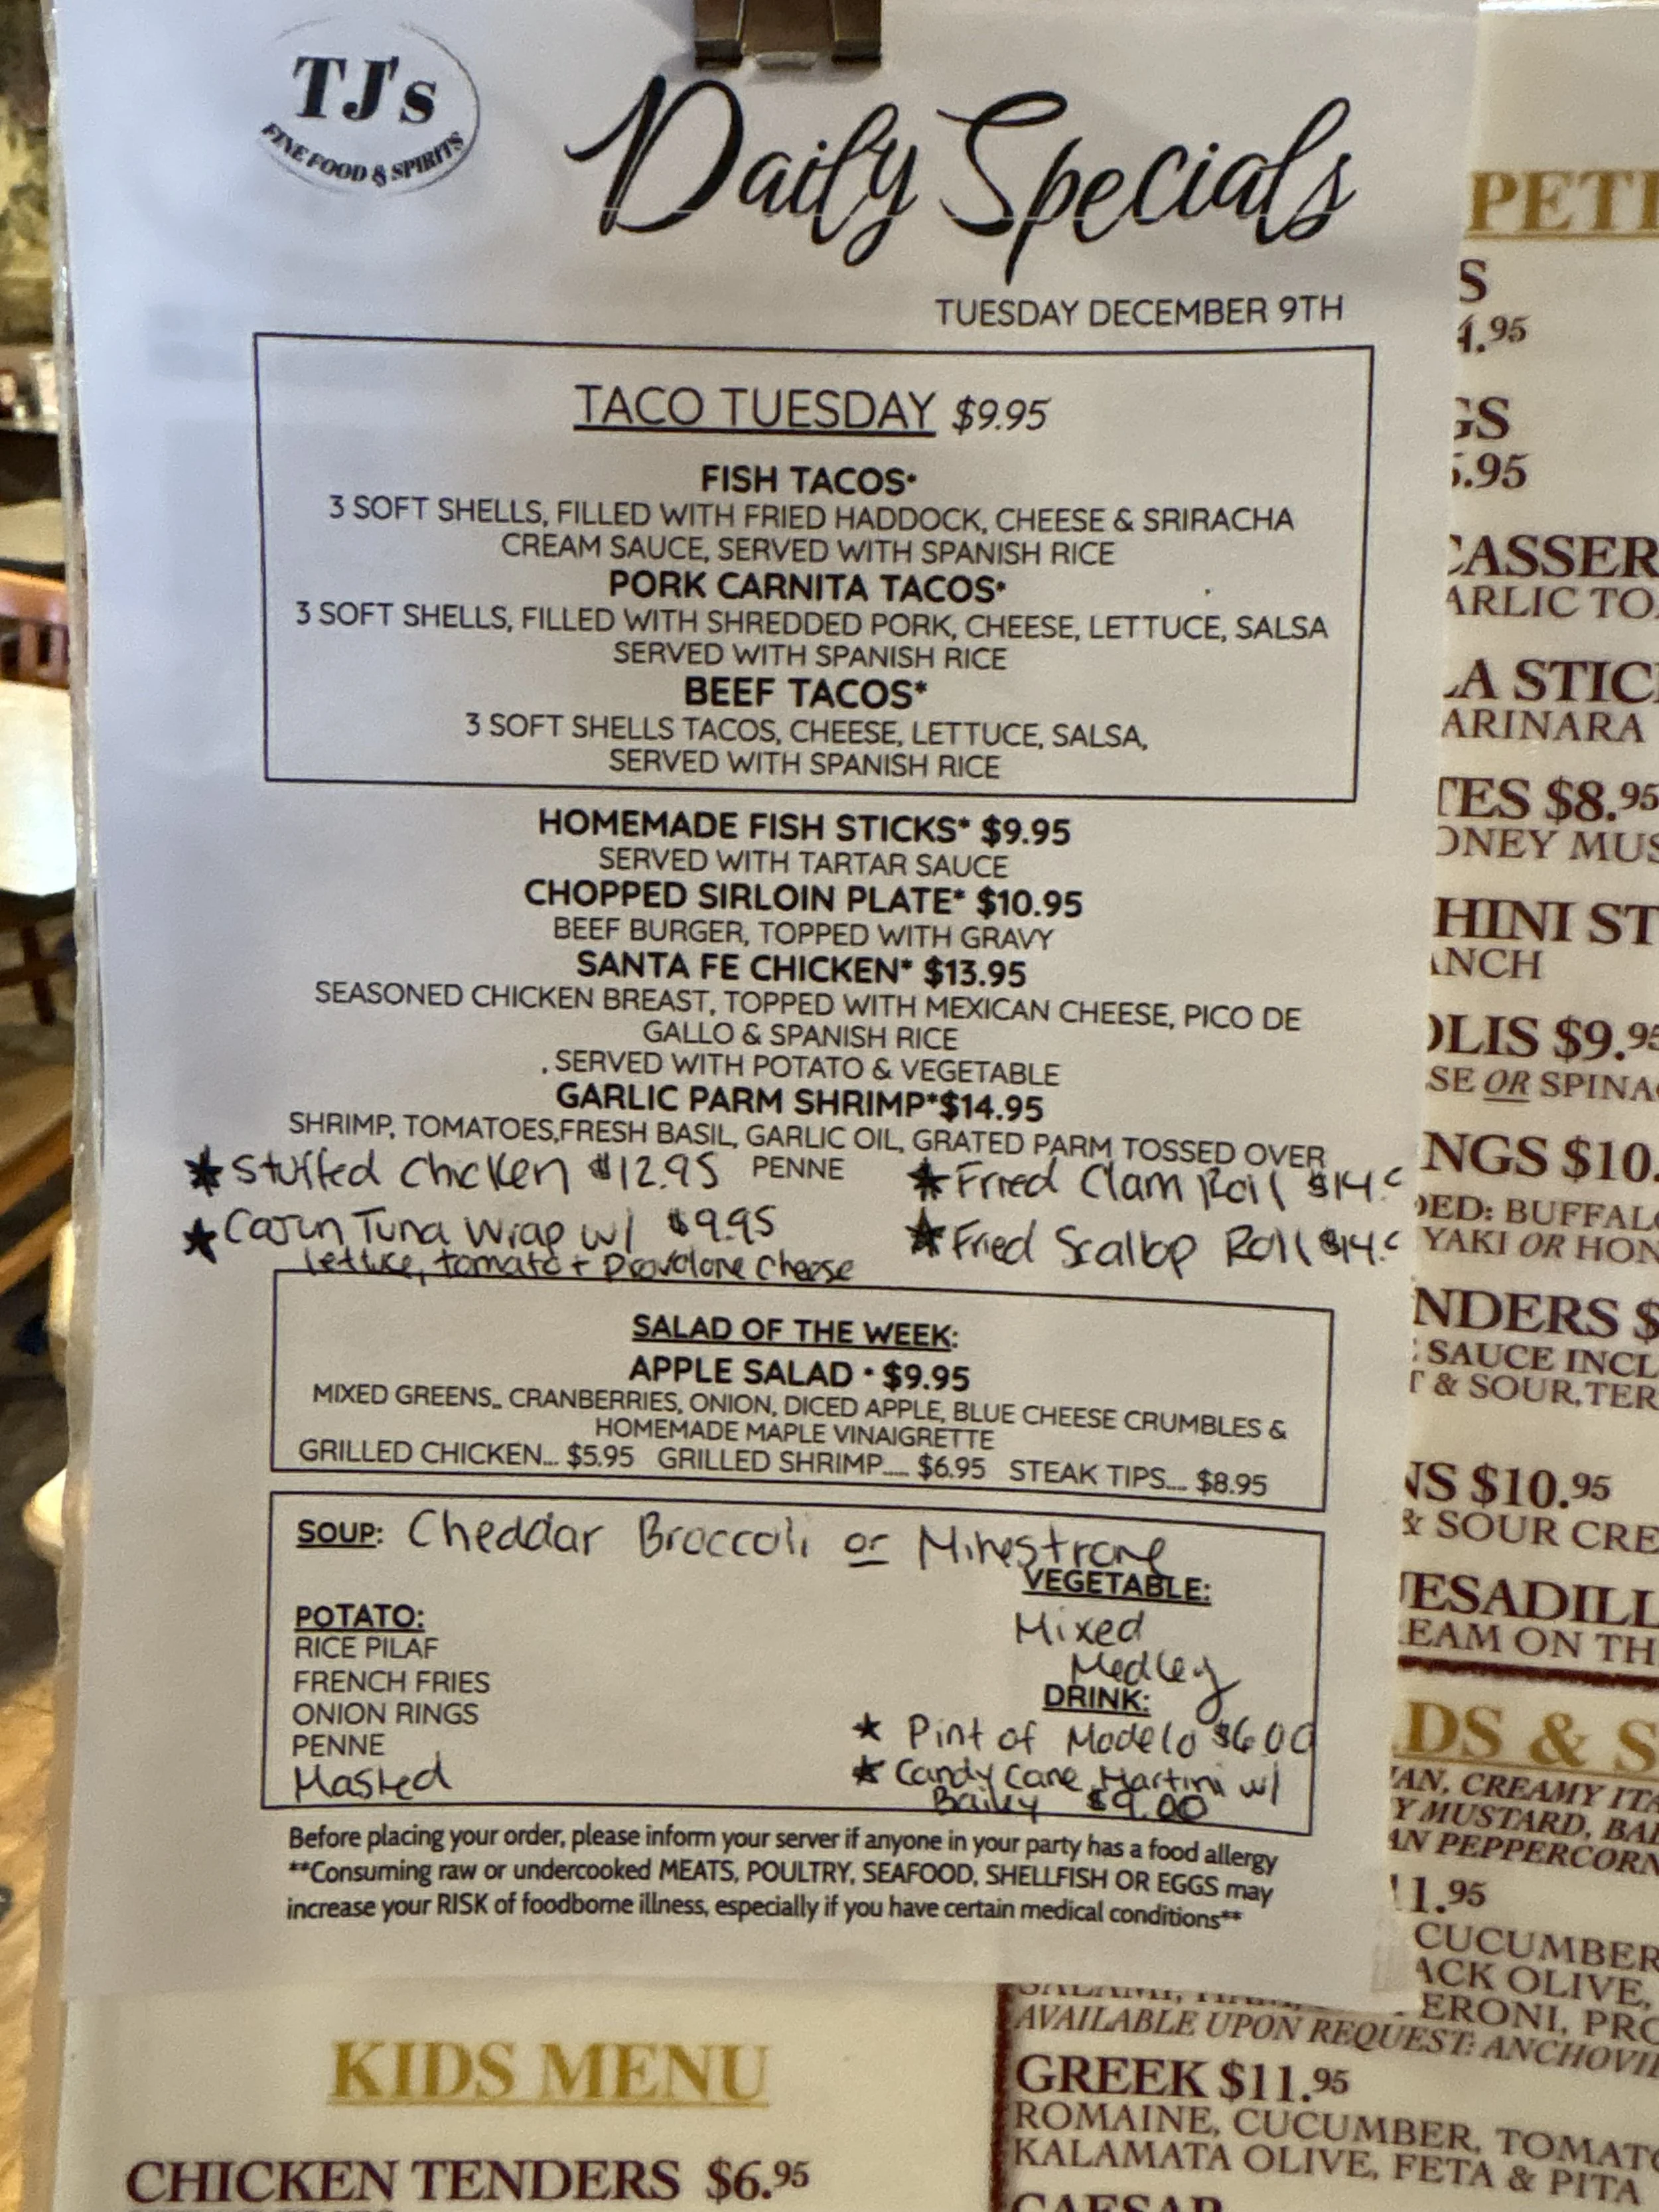 TJ's
FINE FOOD & SPIRITS
Daily Specials
TUESDAY DECEMBER 9TH
TACO TUESDAY $9.95
FISH TACOS*
3 SOFT SHELLS, FILLED WITH FRIED HADDOCK, CHEESE & SRIRACHA
CREAM SAUCE, SERVED WITH SPANISH RICE
PORK CARNITA TACOS*
3 SOFT SHELLS, FILLED WITH SHREDDED PORK, CHEESE, LETTUCE, SALSA
SERVED WITH SPANISH RICE
BEEF TACOS*
3 SOFT SHELLS TACOS, CHEESE, LETTUCE, SALSA,
SERVED WITH SPANISH RICE
HOMEMADE FISH STICKS* $9.95
SERVED WITH TARTAR SAUCE
CHOPPED SIRLOIN PLATE* $10.95
BEEF BURGER, TOPPED WITH GRAVY
SANTA FE CHICKEN* $13.95
SEASONED CHICKEN BREAST, TOPPED WITH MEXICAN CHEESE, PICO DE
GALLO & SPANISH RICE
, SERVED WITH POTATO & VEGETABLE
GARLIC PARM SHRIMP*$14.95
SHRIMP, TOMATOES,FRESH BASIL, GARLIC OIL, GRATED PARM TOSSED OVER
PENNE
★ Stuffed Chicken $12.95
★ Fried Clam Roll $14.
★ Cajun Tuna Wrap w/ $9.95
lettuce, tomato + Provolone Cheese
★ Fried Scallop Roll $14.
SALAD OF THE WEEK:
APPLE SALAD • $9.95
MIXED GREENS,, CRANBERRIES, ONION, DICED APPLE, BLUE CHEESE CRUMBLES &
HOMEMADE MAPLE VINAIGRETTE
GRILLED CHICKEN... $5.95 GRILLED SHRIMP..... $6.95 STEAK TIPS.... $8.95
SOUP: Cheddar Broccoli or Minestrone
POTATO:
RICE PILAF
FRENCH FRIES
ONION RINGS
PENNE
Mashed
VEGETABLE:
Mixed
Medley
DRINK:
★ Pint of Modelo $6.00
★ Candy Cane Martini w/
Bailey $9.00
Before placing your order, please inform your server if anyone in your party has a food allergy
**Consuming raw or undercooked MEATS, POULTRY, SEAFOOD, SHELLFISH OR EGGS may
increase your RISK of foodborne illness, especially if you have certain medical conditions**
KIDS MENU
CHICKEN TENDERS $6.95
PETI
S
4.95
GS
5.95
CASSER
ARLIC TO
LA STIC
ARINARA
TES $8.95
ONEY MUS
HINI ST
ANCH
OLIS $9.95
SE OR SPINA
NGS $10.
DED: BUFFAL
YAKI OR HON
NDERS $
SAUCE INCL
T & SOUR,TER
NS $10.95
& SOUR CRE
ESADILL
EAM ON TH
DS & S
IAN, CREAMY ITA
Y MUSTARD, BAL
AN PEPPERCORN
11.95
CUCUMBER
ACK OLIVE,
ERONI, PRO
AVAILABLE UPON REQUEST: ANCHOVI
GREEK $11.95
ROMAINE, CUCUMBER, TOMATO
KALAMATA OLIVE, FETA & PITA
CAESAR